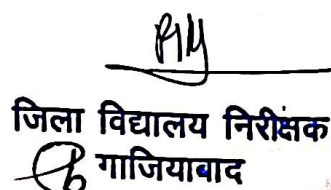 जिला विद्यालय निरीक्षक
गाजियाबाद